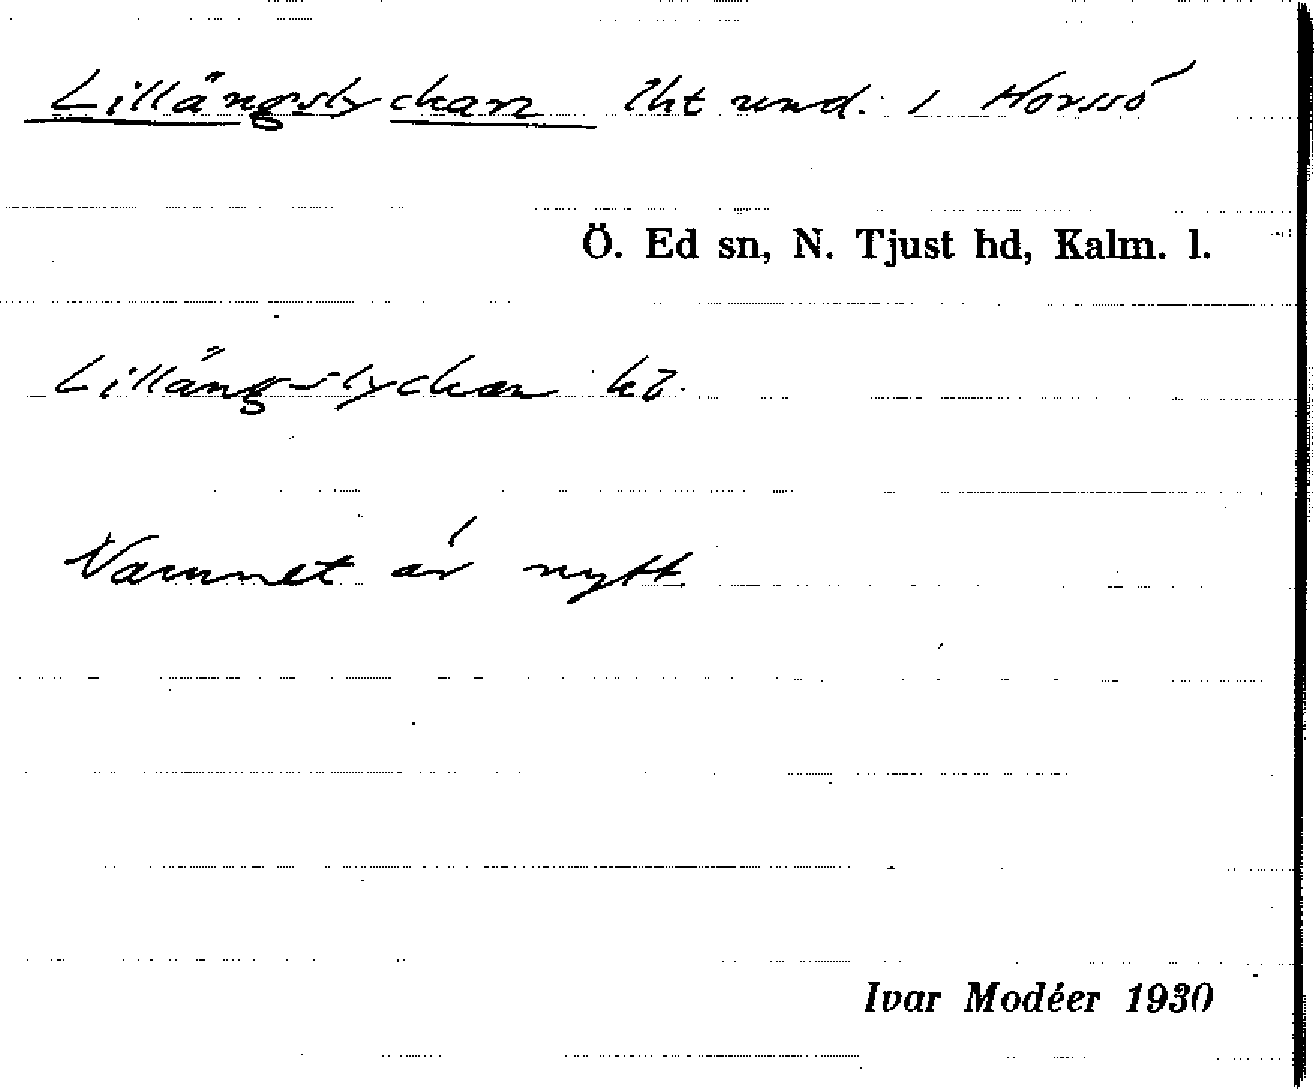 Lillängslyckan lht und. 1 Horssö
Ö. Ed sn, N. Tjust hd, Kalm. l.
Lillängslyckan
Namnet är nytt
Ivar Modéer 1930